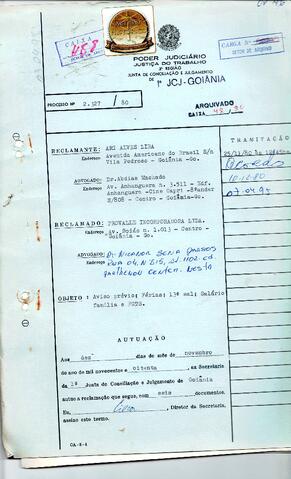 CAIXA
458
CARGA Nº
SETOR DE ARQUIVO
PODER JUDICIÁRIO
JUSTIÇA DO TRABALHO
3ª REGIÃO
JUNTA DE CONCILIAÇÃO E JULGAMENTO
1ª JCJ-GOIÂNIA
PROCESSO Nº 2.527 / 80
ARQUIVADO
CAIXA
TRAMITAÇÃO
RECLAMANTE: ARI ALVES LIRA
Endereço Avenida Americano do Brasil s/n
Vila Pedroso - Goiânia-Go.
25/11/80
ADVOGADO: Dr. Abdias Machado
Endereço Av. Anhanguera n. 3.511 - Edf.
Anhanguera - Cine Capri - 8ºandar
S/808 - Centro - Goiânia-Go.
10.12.80
07.04.95
RECLAMADO: PROVALLE INCORPORADORA LTDA.
Endereço Av. Goiás n. 1.013 - Centro -
Goiânia - Go.
ADVOGADO: Dr. Nicanor Sena Passos
Endereço Rua 04, Nº 515, sl. 1102, ed.
Parthenon Center. Nesta
OBJETO : Aviso prévio; Férias; 13º sal; Salário
família e FGTS.
AUTUAÇÃO
Aos dez dias do mês de novembro
do ano de mil novecentos e oitenta, na Secretaria
da 1ª Junta de Conciliação e Julgamento de Goiânia
autuo a reclamação que segue, com seis documentos.
Eu, , Diretor da Secretaria,
assino este termo.